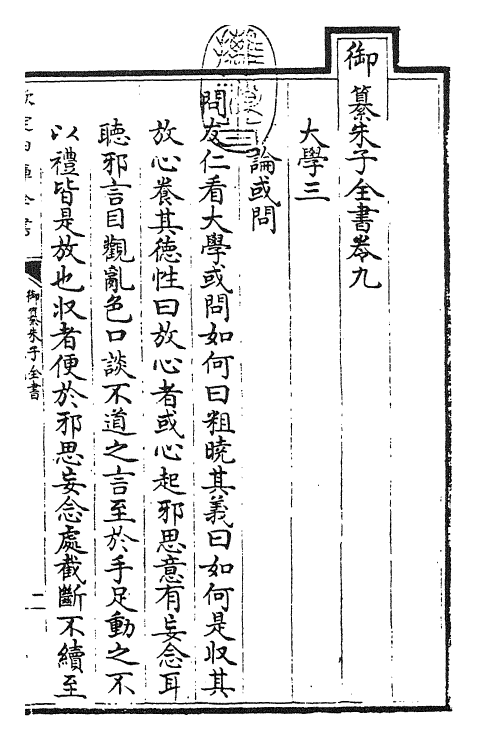 御纂朱子全書卷九
大學三
論或問
問友仁看大學或問如何曰粗曉其義曰如何是収其
放心養其德性曰放心者或心起邪思意有妄念耳
聽邪言目觀亂色口談不道之言至於手足動之不
以禮皆是放也収者便於邪思妄念處截斷不續至
御纂朱子全書